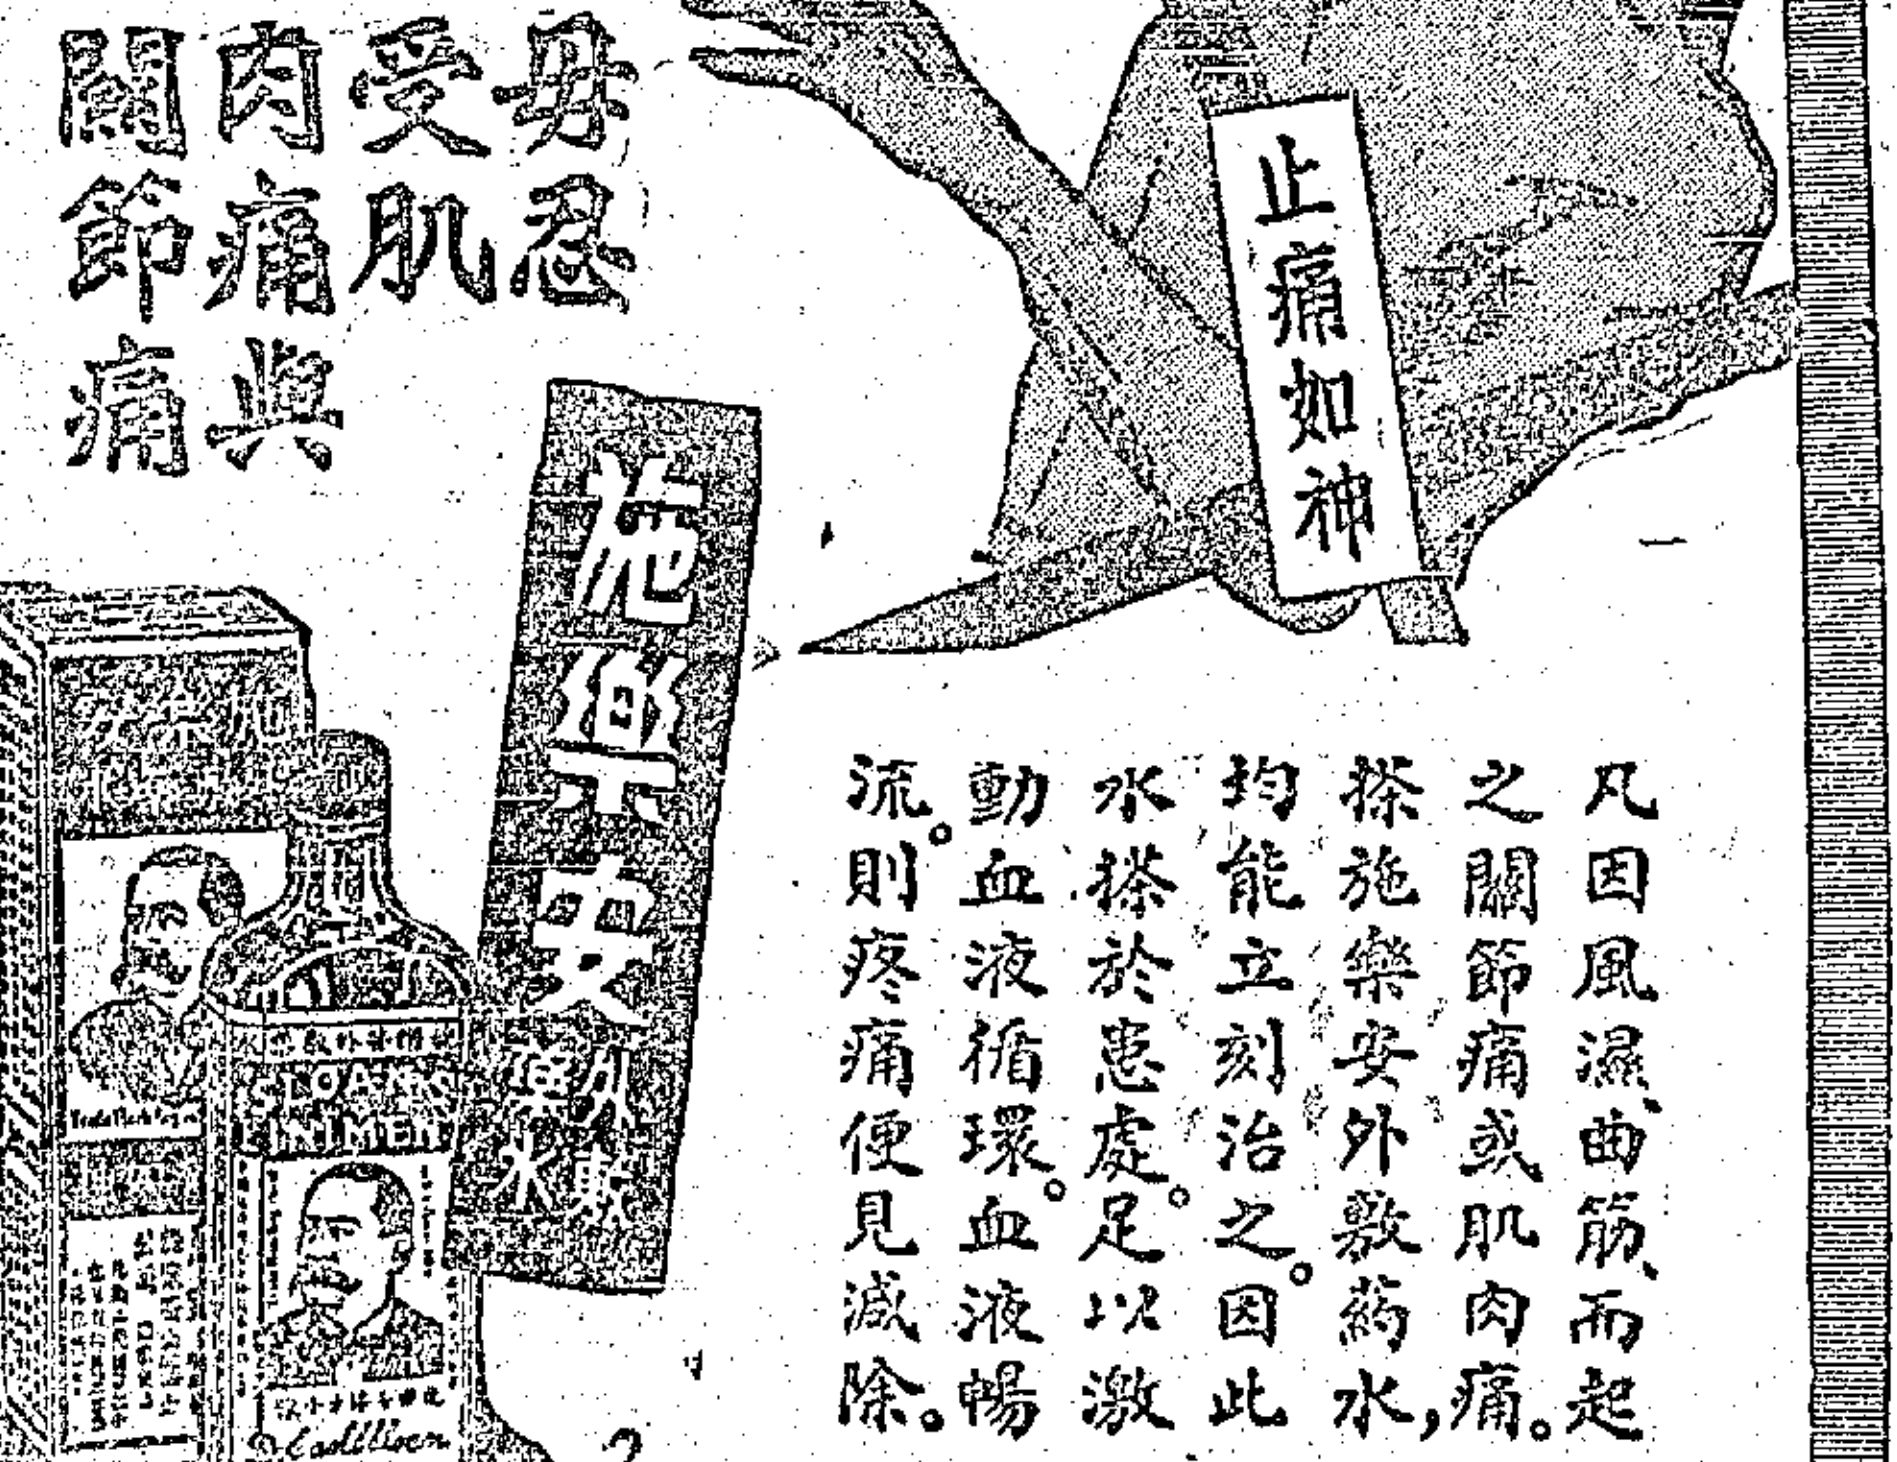 毋忍
受肌
肉痛與
關節痛
止痛如神
施樂安
外敷
藥水
凡因風濕、曲筋、而起
之關節痛或肌肉痛。
搽施樂安外敷葯水，
均能立刻治之。因此
水搽於患處。足以激
動血液循環。血液暢
流。則疼痛便見減除。
SLOAN'S
LINIMENT